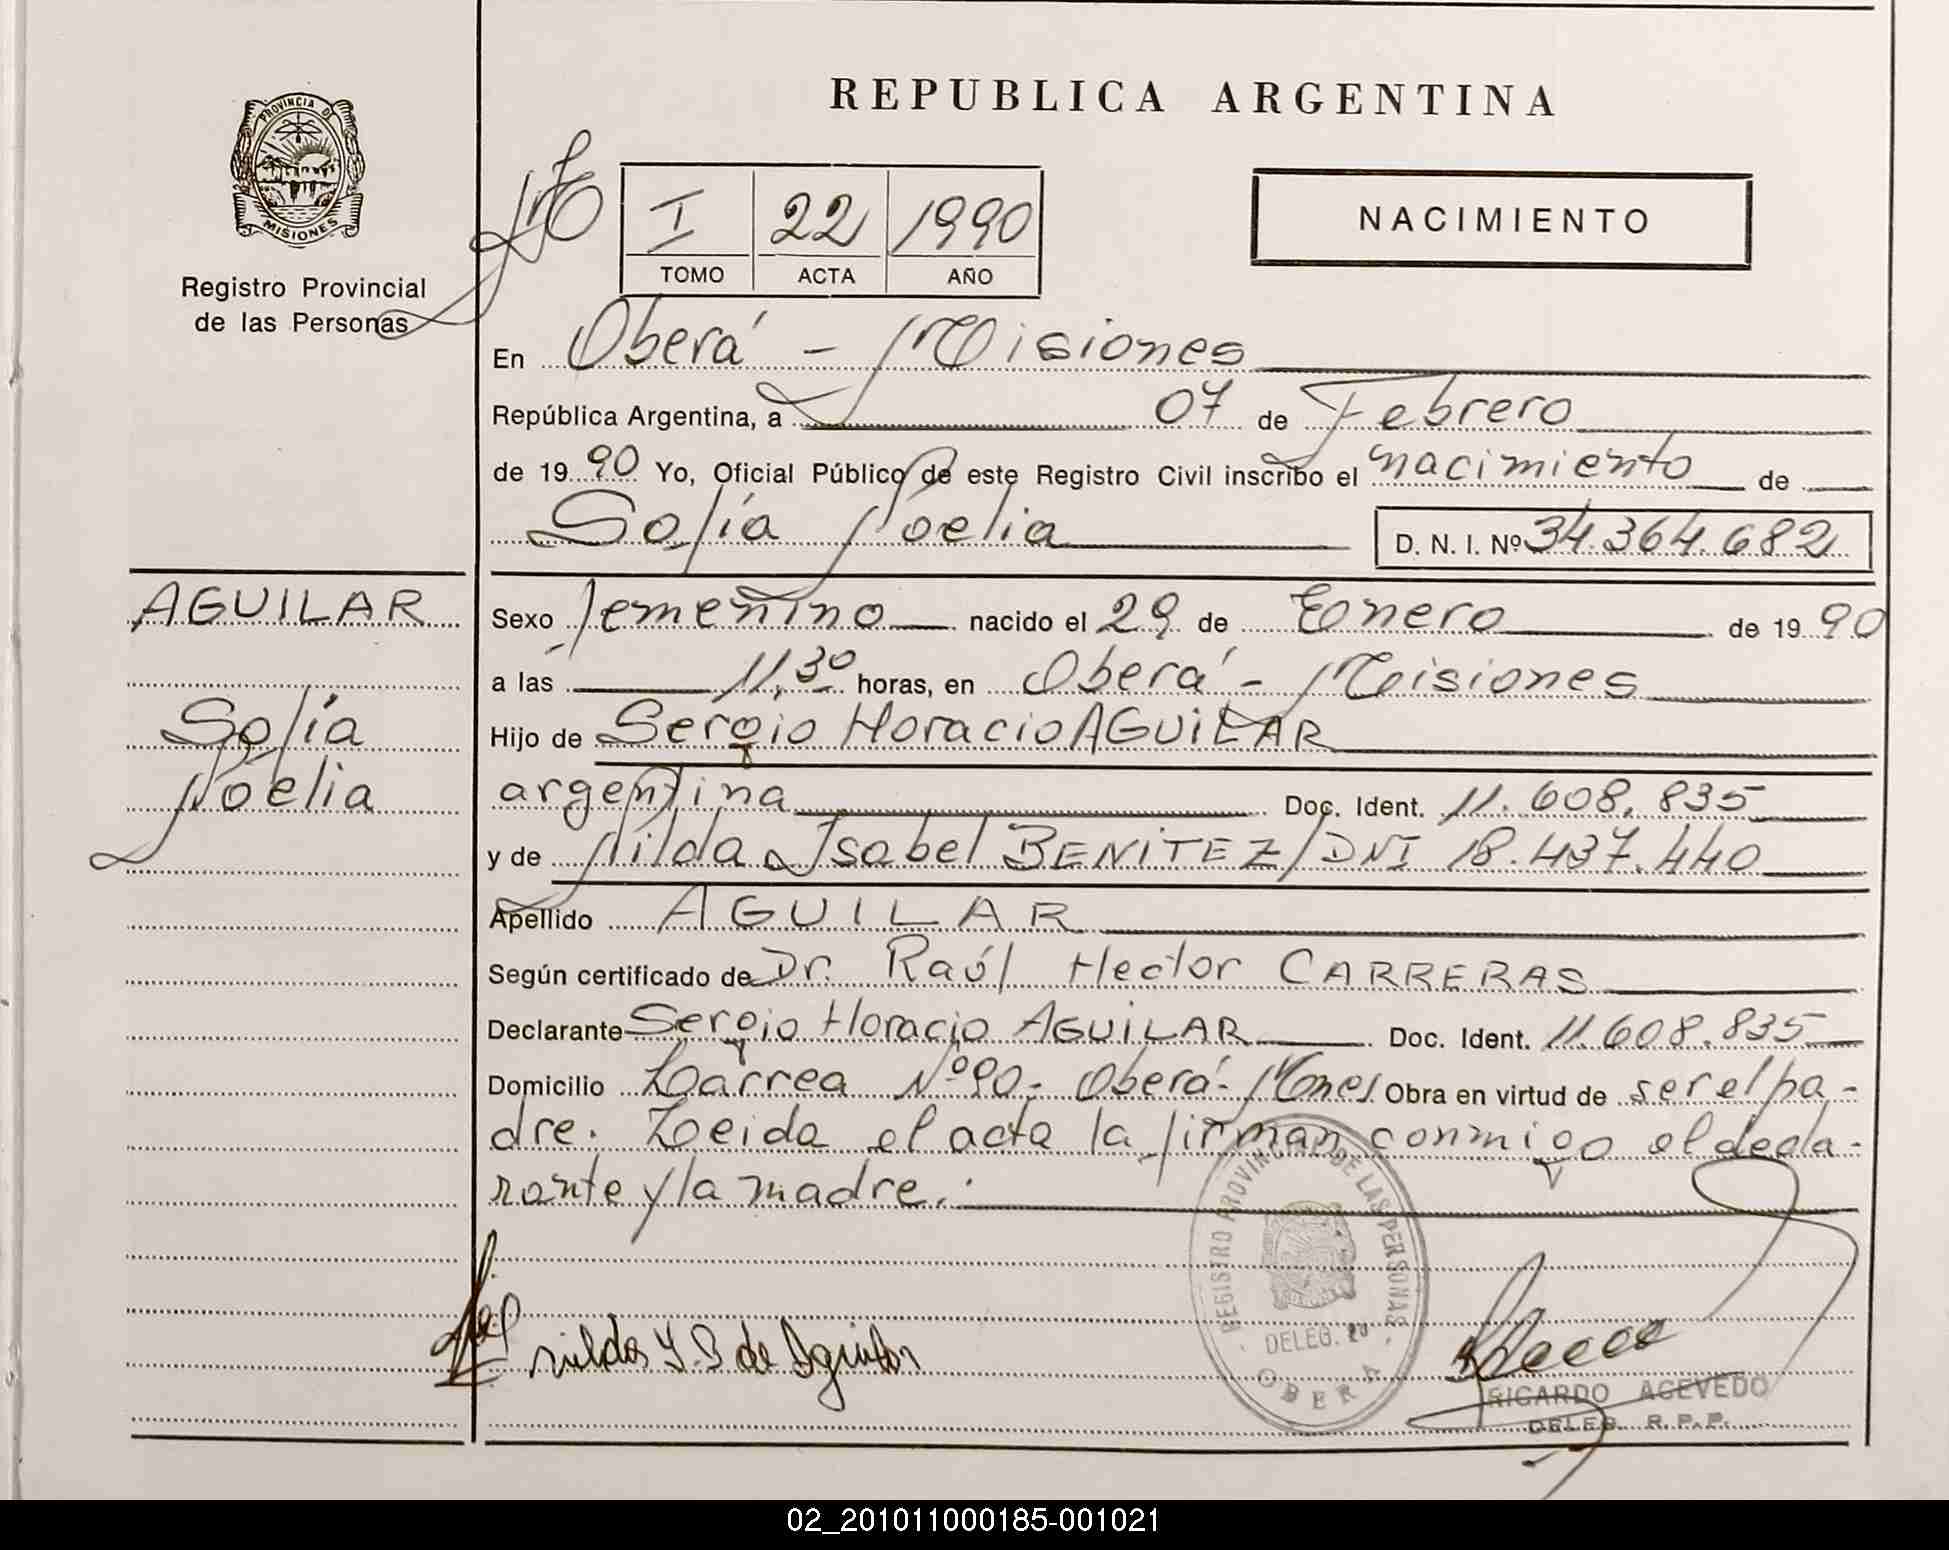 REPUBLICA ARGENTINA
PROVINCIA DE
MISIONES
Registro Provincial
de las Personas
I 22 1990
TOMO ACTA AÑO
NACIMIENTO
En Oberá - Misiones
República Argentina, a 07 de Febrero
de 1990 Yo, Oficial Público de este Registro Civil inscribo el nacimiento de
Sofía Noelia D. N. I. Nº 34.364.682
AGUILAR
Sofía
Noelia
Sexo femenino nacido el 29 de Enero de 1990
a las 11,30 horas, en Oberá - Misiones
Hijo de Sergio Horacio AGUILAR
argentina Doc. Ident. 11.608.835
y de Nilda Isabel BENITEZ/DNI 18.437.440
Apellido AGUILAR
Según certificado de Dr. Raúl Hector CARRERAS
Declarante Sergio Horacio AGUILAR Doc. Ident. 11.608.835
Domicilio Larrea Nº 90- Oberá- Mnes Obra en virtud de ser el pa-
dre. Leida el acta la firman conmigo el decla-
rante y la madre.
REGISTRO PROVINCIAL DE LAS PERSONAS
DELEG.
OBERA
nilda Y. B de Aguilar
RICARDO ACEVEDO
DELEG. R.P.P.
02_201011000185-001021